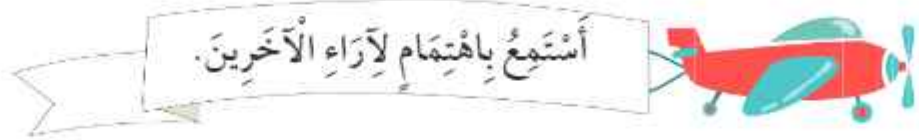 أَسْتَمِعُ بِاهْتِمَامٍ لِآرَاءِ الْآخَرِينَ.